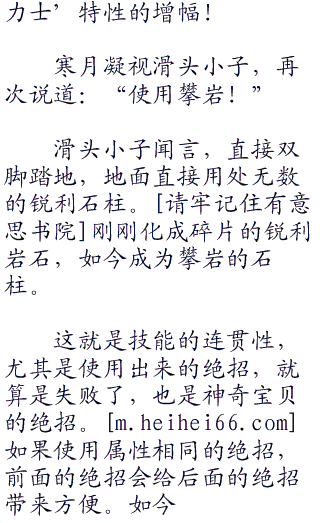 力士’特性的增幅！
寒月凝视滑头小子，再
次说道：“使用攀岩！”
滑头小子闻言，直接双
脚踏地，地面直接用处无数
的锐利石柱。[请牢记住有意
思书院]刚刚化成碎片的锐利
岩石，如今成为攀岩的石
柱。
这就是技能的连贯性，
尤其是使用出来的绝招，就
算是失败了，也是神奇宝贝
的绝招。[m.heihei66.com]
如果使用属性相同的绝招，
前面的绝招会给后面的绝招
带来方便。如今